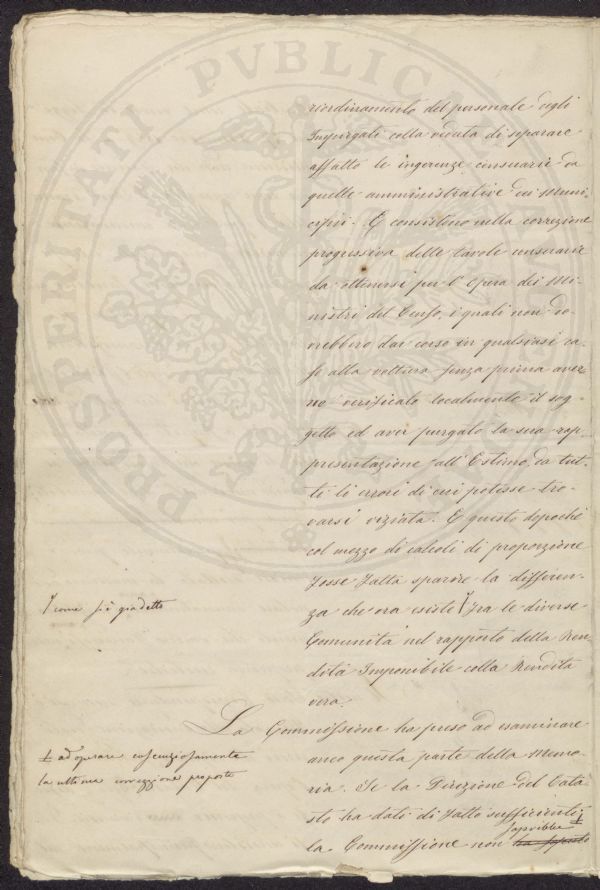 PROSPERITATI PVBLICAE
riordinamento del personale degli
Impiegati colla veduta di separare
affatto le ingerenze censuarie da
quelle amministrative dei Muni-
cipii. E consistono nella correzione
progressiva delle tavole censuarie
da ottenersi per l'opera dei Mi-
nistri del Censo, i quali non do-
vrebbero dar corso in qualsiasi ca-
so alla voltura senza prima aver-
ne verificato localmente il sog-
getto ed aver purgato la sua rap-
presentazione all'Estimo da tut-
ti li errori di cui potesse tro-
varsi viziata. E questo dopoché
col mezzo di calcoli di proporzione
fosse fatta sparire la differen-
za che ora esiste fra le diverse
Comunità nel rapporto della Ren-
dita Imponibile colla Rendita
vera.
come si è già detto
La Commissione ha preso ad esaminare
anco questa parte della Memo-
ria. Se la Direzione del Cata-
sto ha dati di fatto sufficienti
la Commissione non saprebbe
ad operare coscenziosamente
la ultima correzzione proposta